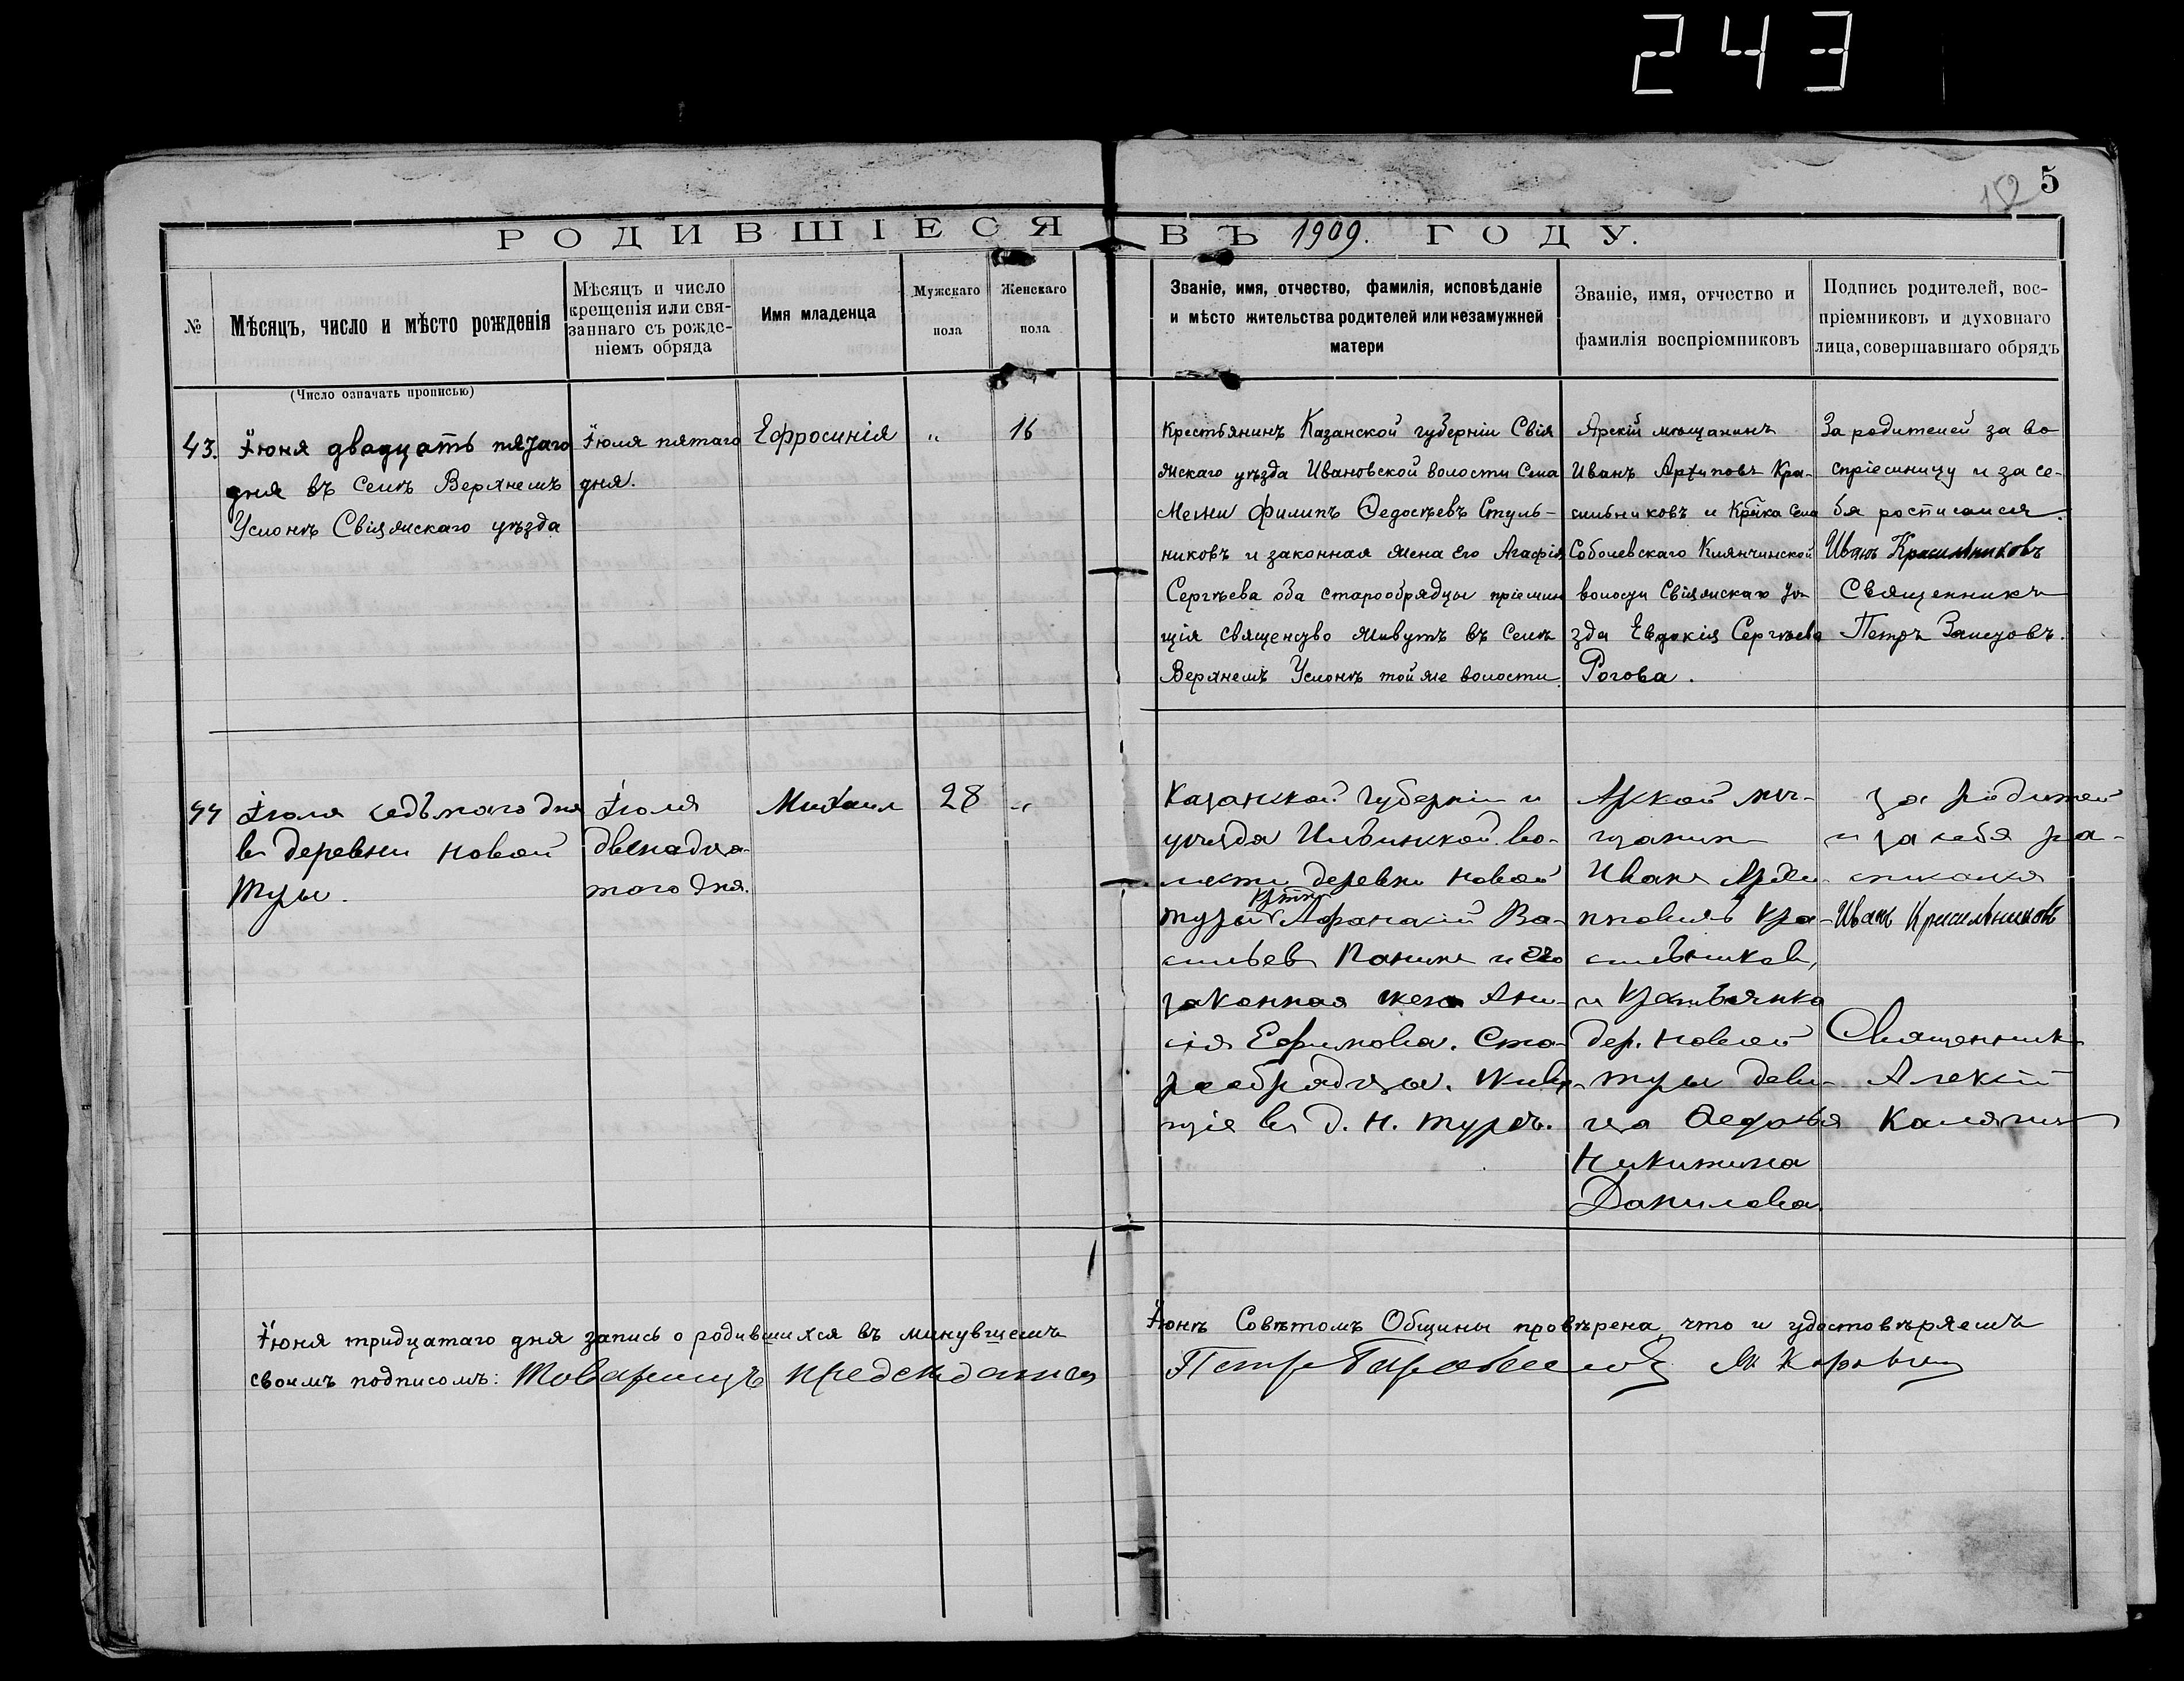 243
152
5
РОДИВШІЕСЯ ВЪ 1909. ГОДУ.
№
Мѣсяцъ, число и мѣсто рожденія
Мѣсяцъ и число
крещенія или свя-
заннаго съ рожде-
ніемъ обряда
Имя младенца
Мужскаго
пола
Женскаго
пола
Званіе, имя, отчество, фамилія, исповѣданіе
и мѣсто жительства родителей или незамужней
матери
Званіе, имя, отчество и
фамилія воспріемниковъ
Подпись родителей, вос-
пріемниковъ и духовнаго
лица, совершавшаго обрядъ
(Число означать прописью)
43.
Іюня двадцать пятаго
дня въ селѣ Верхнемъ
Услонѣ Свіяжскаго уѣзда
Іюля пятаго
дня.
Ефросинія
"
16
Крестьянинъ Казанской губерніи Свія
жскаго уѣзда Ивановской волости Села
Филипъ Ѳедосѣевъ Стуль-
никовъ и законная жена его Агафія
Сергѣева оба старообрядцы пріемлю
щія священство живутъ въ селѣ
Верхнемъ Услонѣ той же волости.
Арскій мѣщанинъ
Иванъ Архиповъ Кра-
сильниковъ и Кр-ка Села
Соболевскаго Клянчинской
волости Свіяжскаго Уѣ
зда Евдокія Сергѣева
Рогова.
За родителей за во
спріемницу и за се-
бя росписался.
Иванъ Красильниковъ
Священникъ
Петръ Залетовъ.
44
Іюля седьмого дня
въ деревни Новой
Туры.
Іюля
двѣнадца-
того дня.
Михаил
28
"
Казанской губерніи и
уѣзда Ильинской во-
лости деревни Новой
кр-нъ
Туры Афанасій Ва-
сильев Панинъ и его
законная жена Ани-
сія Ефимова. Ста-
рообрядцы. Живу-
щіе въ д. Н. Турѣ.
Арской мѣ-
щанин
Иванъ Архи-
повичъ Кра-
сильников,
и крестьянка
дер. Новой
Туры деви-
ца Ѳедосья
Никитина
Данилова.
за родителей
и за себя ра-
списался
Иванъ Красильниковъ
Священникъ
Алексій
Калягин
Іюня тридцатаго дня запись о родившихся въ минувшемъ Іюнѣ Совѣтомъ Общины провѣрена, что и удостовѣряемъ
своимъ подписомъ: Товарищъ председателя Петр